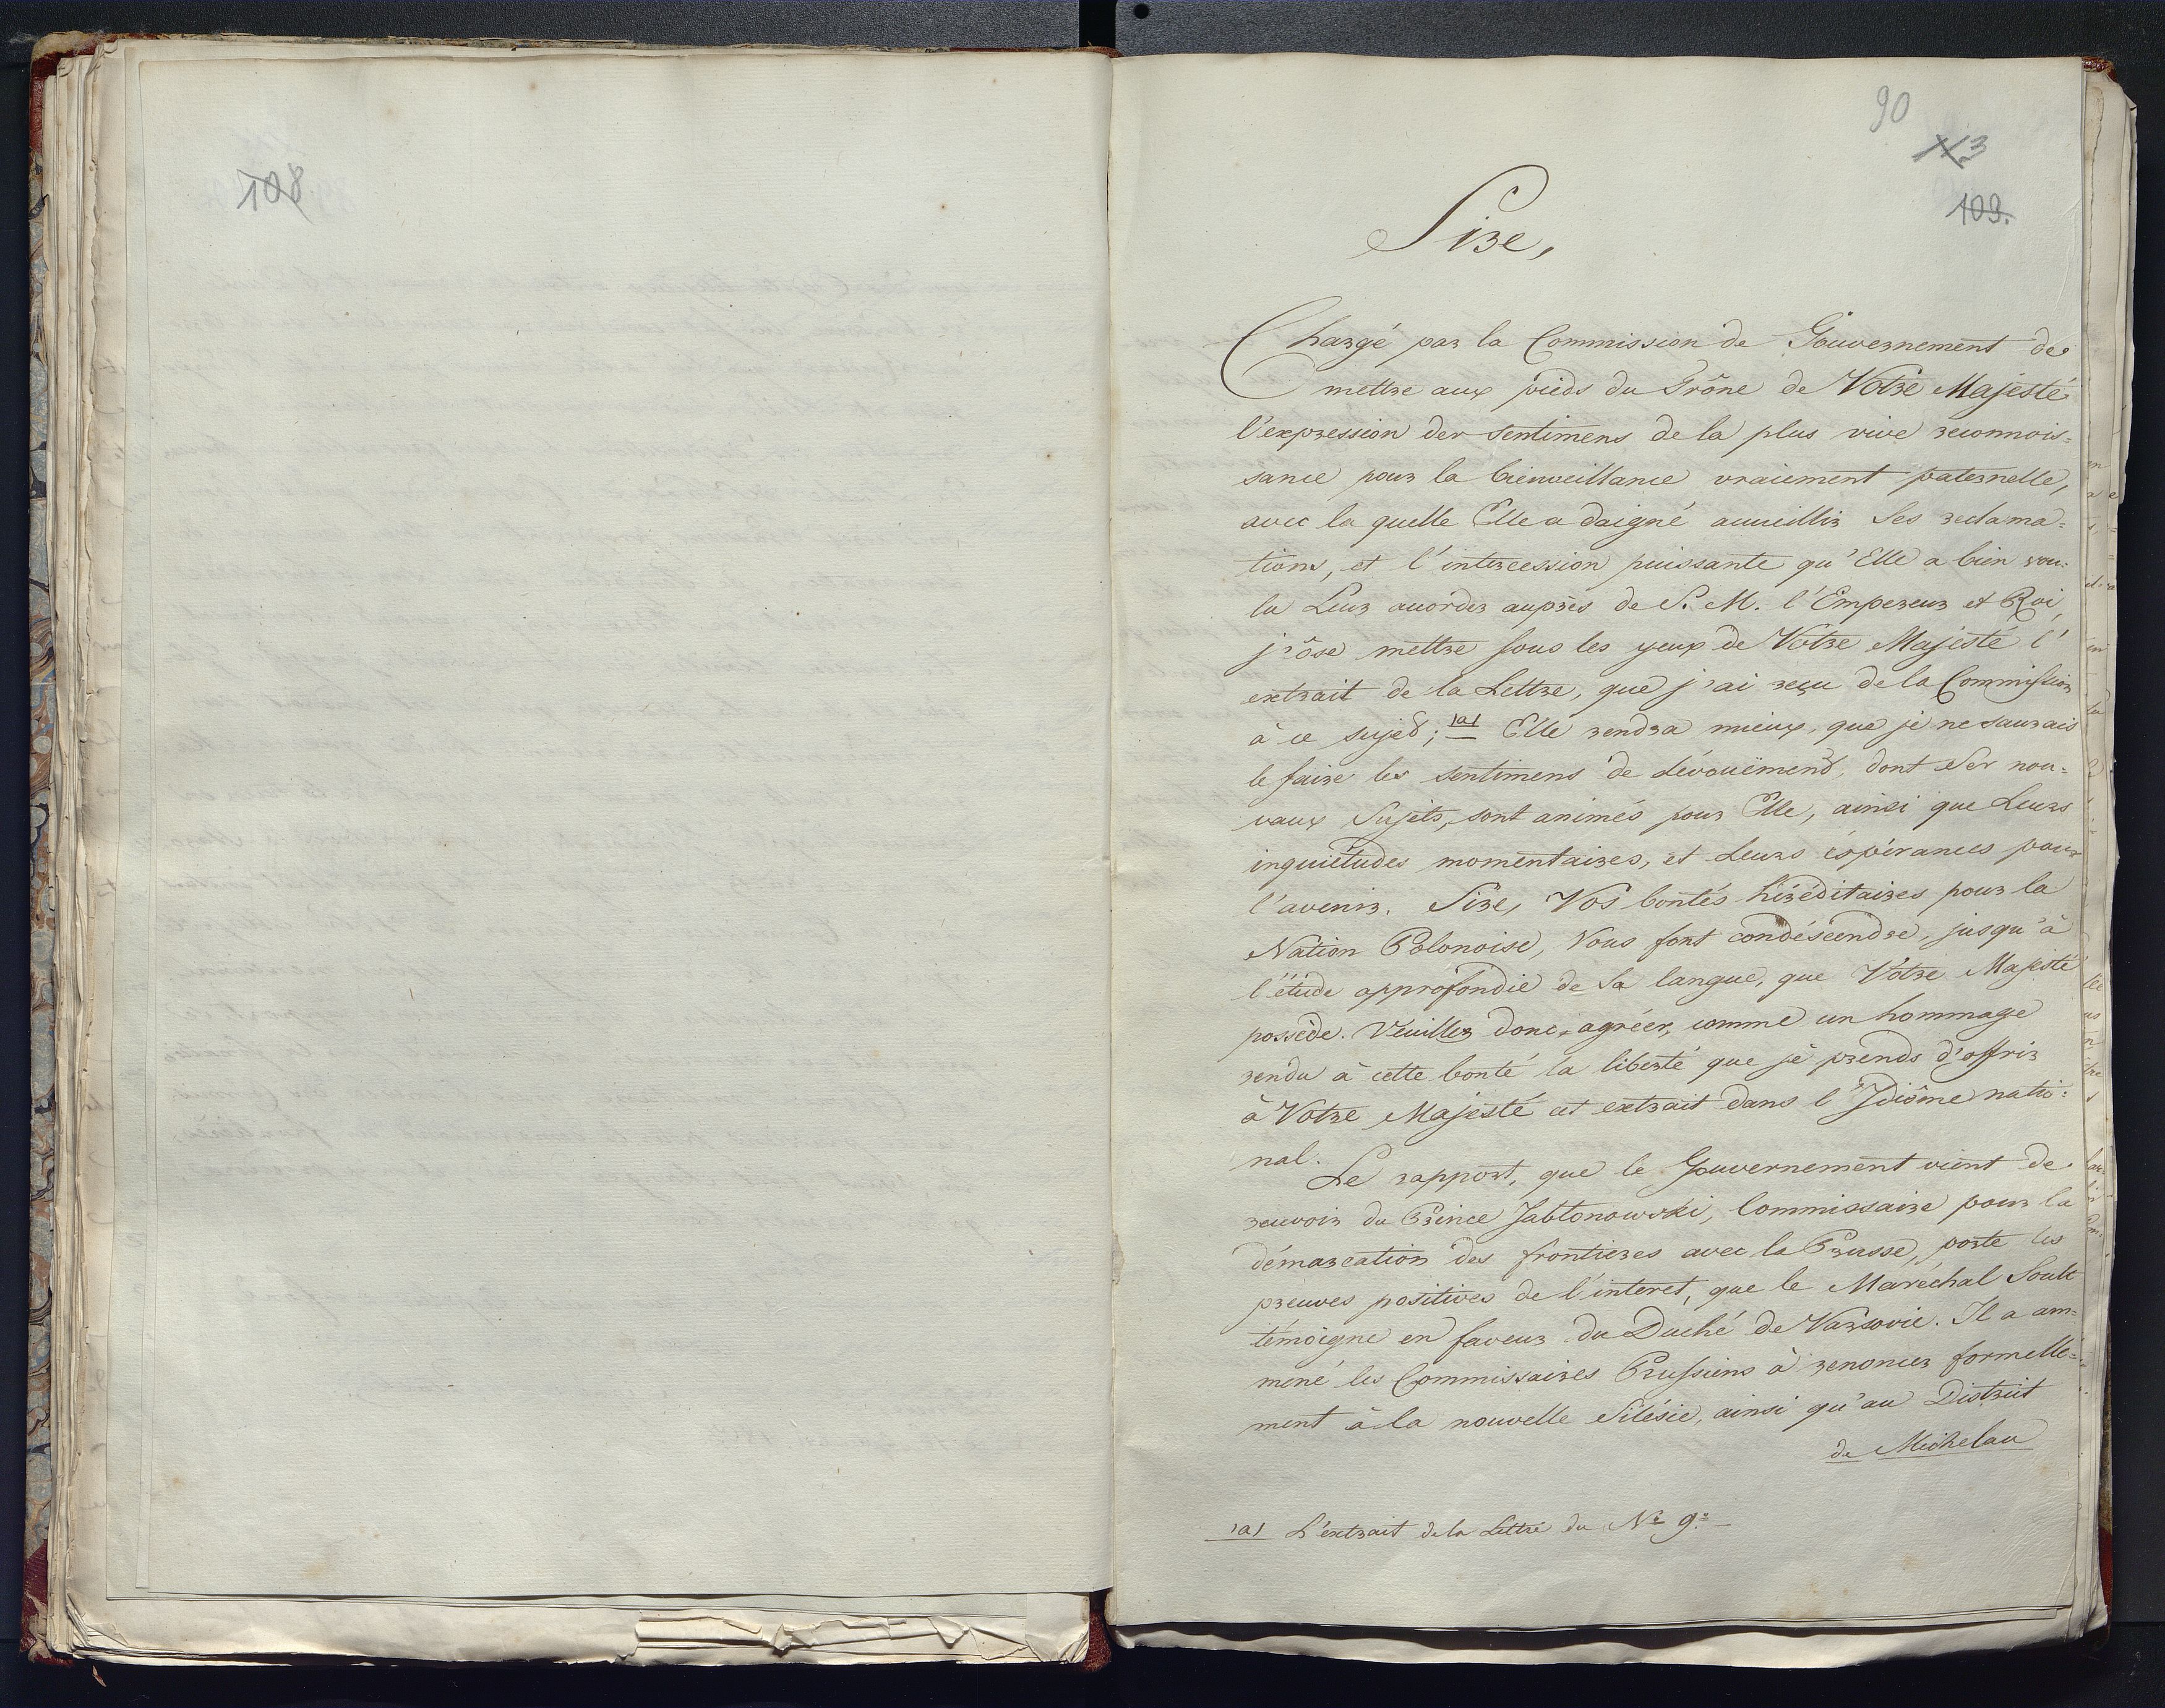 108
90
113
109.
Sire,
Chargé par la Commission de Gouvernement de
mettre aux pieds du Trône de Votre Majesté
l'expression des sentimens de la plus vive reconnois=
sance pour la bienveillance vraiement paternelle,
avec la quelle Elle a daigné accueillir Ses reclama=
tions, et l'intercession puissante qu'Elle a bien vou=
lu Leur accorder auprès de S. M. l'Empereur et Roi,
j'ôse mettre sous les yeux de Votre Majesté l'
extrait de la Lettre, que j'ai reçu de la Commission
à ce sujet; /a/ Elle rendra mieux, que je ne saurais
le faire les sentimens de dévouëment, dont Ses nou=
vaux Sujets, sont animés pour Elle, ainsi que Leurs
inquiétudes momentaires, et Leurs éspérances pour
l'avenir. Sire, Vos bontés héréditaires pour la
Nation Polonoise, Vous font condéscendre, jusqu'à
l'étude approfondie de Sa langue, que Votre Majesté
possède. Veuillez donc agréer, comme un hommage
rendu à cette bonté la liberté que je prends d'offrir
à Votre Majesté cet extrait dans l'Idiôme natio=
nal.
Le rapport, que le Gouvernement vient de
recevoir du Prince Jabłonowski, Commissaire pour la
démarcation des frontieres avec la Prusse, porte les
preuves positives de l'interet, que le Maréchal Soult
témoigne en faveur du Duché de Varsovie. Il a am=
mené les Commissaires Prussiens à renoncer formelle=
ment à la nouvelle Silésie, ainsi qu'au District
de Michelau
/a/ L'extrait de la Lettre du No 9.